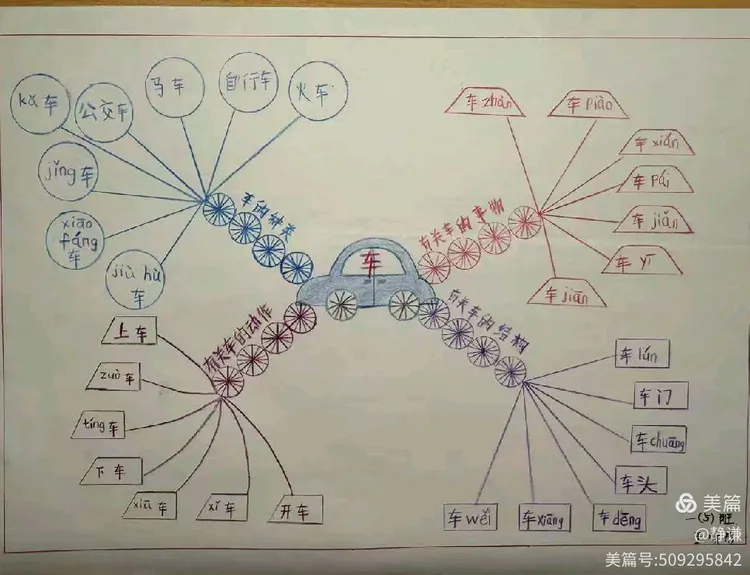 kǎ车
公交车
马车
自行车
火车
jǐng车
xiāo
fáng
车
jiù hù
车
车的种类
车
有关车的事物
车zhàn
车piào
车xián
车pái
车jiàn
车yī
车jiān
有关车的动作
上车
zuò车
tíng车
下车
xiū车
xǐ车
开车
有关车的结构
车lún
车门
车chuāng
车头
车dēng
车xiāng
车wěi
一(5)班
美篇
@静谦
美篇号:509295842